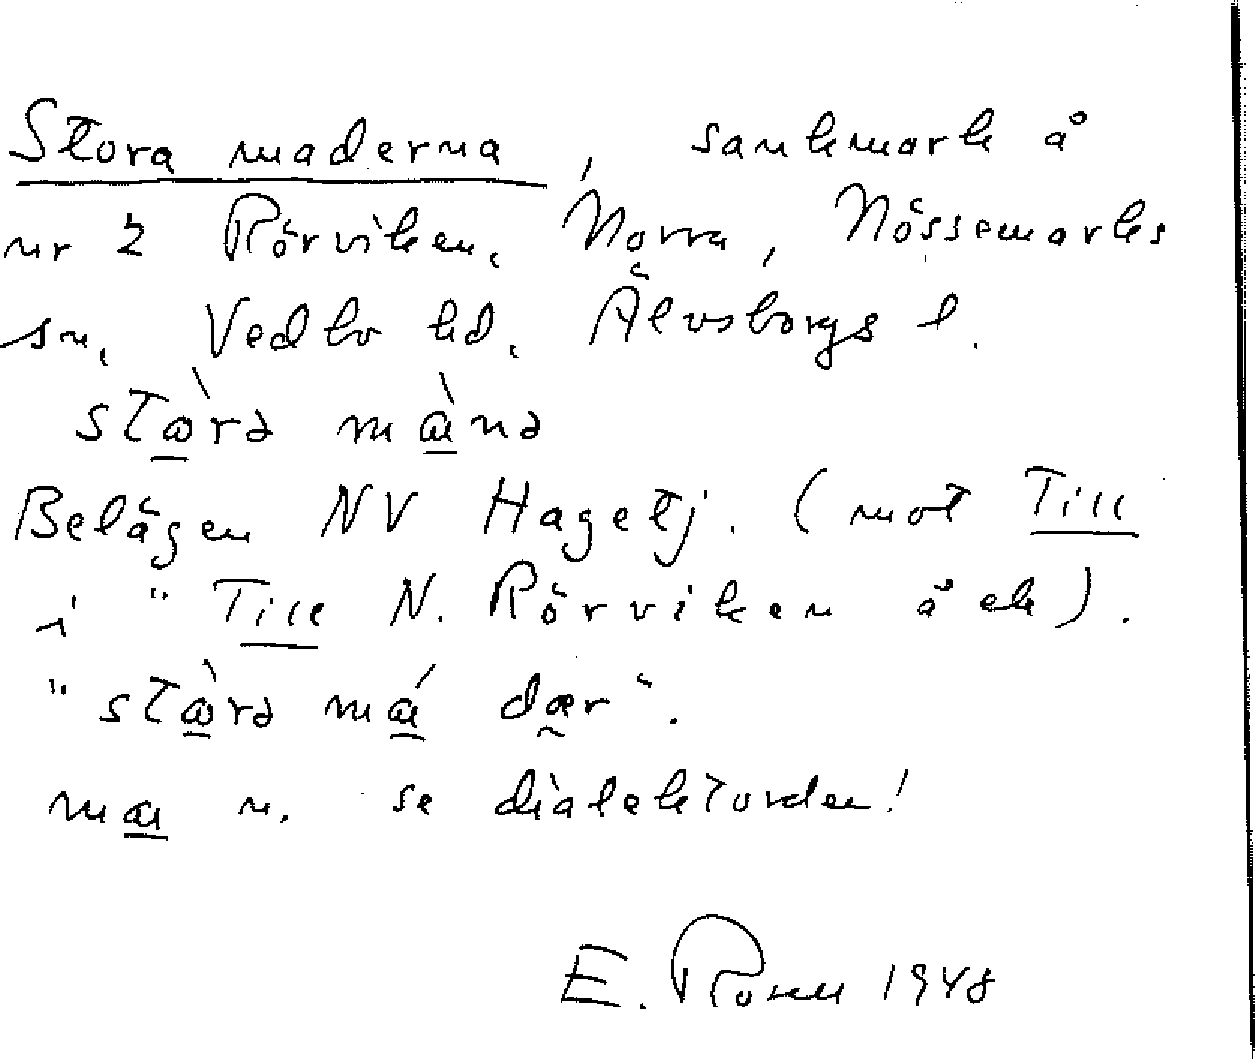 Stora maderna, sankmark å
nr 2 Rörviken, Norra, Nössemarks
sn, Vedbo hd, Älvsborgs l.
stɷ̀rə mɑ̀nə
Belägen NV Hagetj. (mot Till
i "Till N. Rörviken å ek).
"stɷ̀rə mɑ́ dær".
mɑ n. se dialektorden!
E. 1948